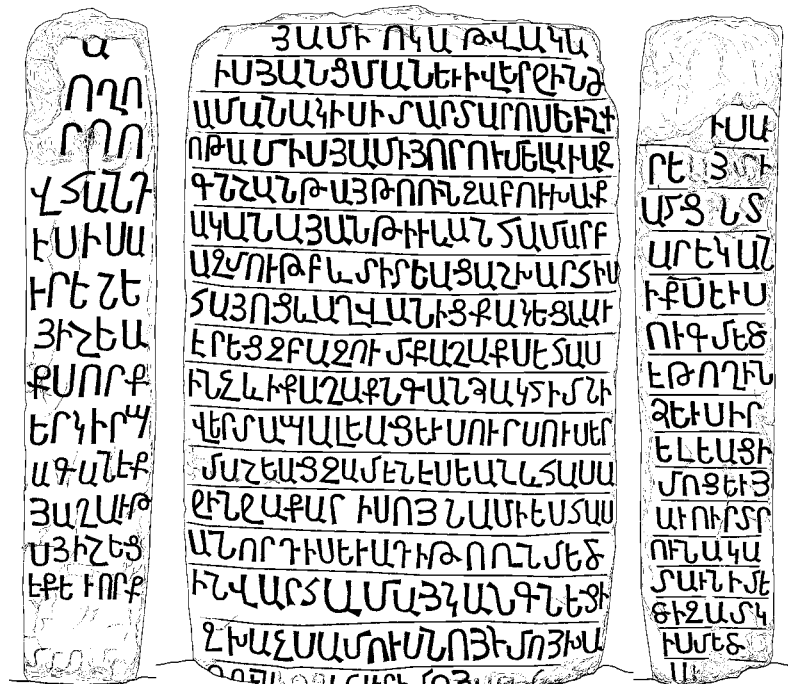 Ա
ՈՂՈ
ՐՂՈ
ՎՏԱՆԴ
ԷՍԻՍԱ
ԻՐԵՆԵ
ՅԻՇԵԱ
ՔՍՈՐՔ
ԵՐԿԻՐՊ
ԱԳԱՆԵՔ
ՅԱՂԱՒԹ
ՍՅԻՇԵՑ
ԷՔԵ ՒՈՐՔ
ՅԱՄԻ ՈԿԱ ԹՎԱԿԱ
ԻՍՅԱՆՑՄԱՆԵՒԻՎԵՐՋԻՆԺ
ԱՄԱՆԱԿԻՍԻՄԱՐՏԱՐՈՍԵՒՂԻ
ՈԹԱՄԻՍՅԱՄԻՅՈՐՈՒՄԵԼԱՒԱԶ
ԳՆՀԱՆԹԱՅԹՈՌՆՉԱԲՈՒԽԱՔ
ԱԿԱՆԱՅԱՆԹԻՒԼԱՆՀԱՄԱՐԲ
ԱԶՄՈՒԹԲևՄԻՐԵԱՑԱՇԽԱՐՀԻՍ
ՀԱՅՈՑևԱՂՎԱՆԻՑՔԱԿԵՑԵԱՒ
ԷՐԵՑԶԲԱԶՈՒՄՔԱՂԱՔՍԷՀԱՍ
ԻՆՉևԻՔԱՂԱՔՆԳԱՆՁԱԿՏԻՄՆԻ
ՎԵՐՄԱՊԱԼԵԱՑԵՒՍՈՒՐՍՈՒՍԵՐ
ՄԱՇԵԱՑԶԱՄԷՆԷՍԵԱՆևՀԱՍԱ
ՋԻՆՋԱՔԱՐ ԻՍՈՅ ՆԱՄԻԵՍՏԱՍ
ԱՆՈՐԴԻՍԵՒԱԴԻԹՈՌՆՄԵԾ
ԻՆՎԱՐՀԱԼՄԱՅԿԱՆԳՆԵՑԻ
ԶԽԱՉՍԱՄՈՒՍՆՈՅԻՄՈՅԽԱ
ԻՍԱ
ՐԵ Յ ՄԻ
ԱՄՑ ԼՏ
ԱՐԵԿԱՆ
ԻՔՍԷՒՍ
ՈՒԳՄԵԾ
ԷԹՈՂԻՆ
ՁԵՒՍԻՐ
ԵԼԵԱՑԻ
ՄՈՑԵՒՅ
ԱՒՈՒՐՏՐ
ՈՒՆԱԿԱ
ՄԱՒՆԻՄԷ
ԾԻԶԱՄԿ
ԻՍՄԵԾ
Ա